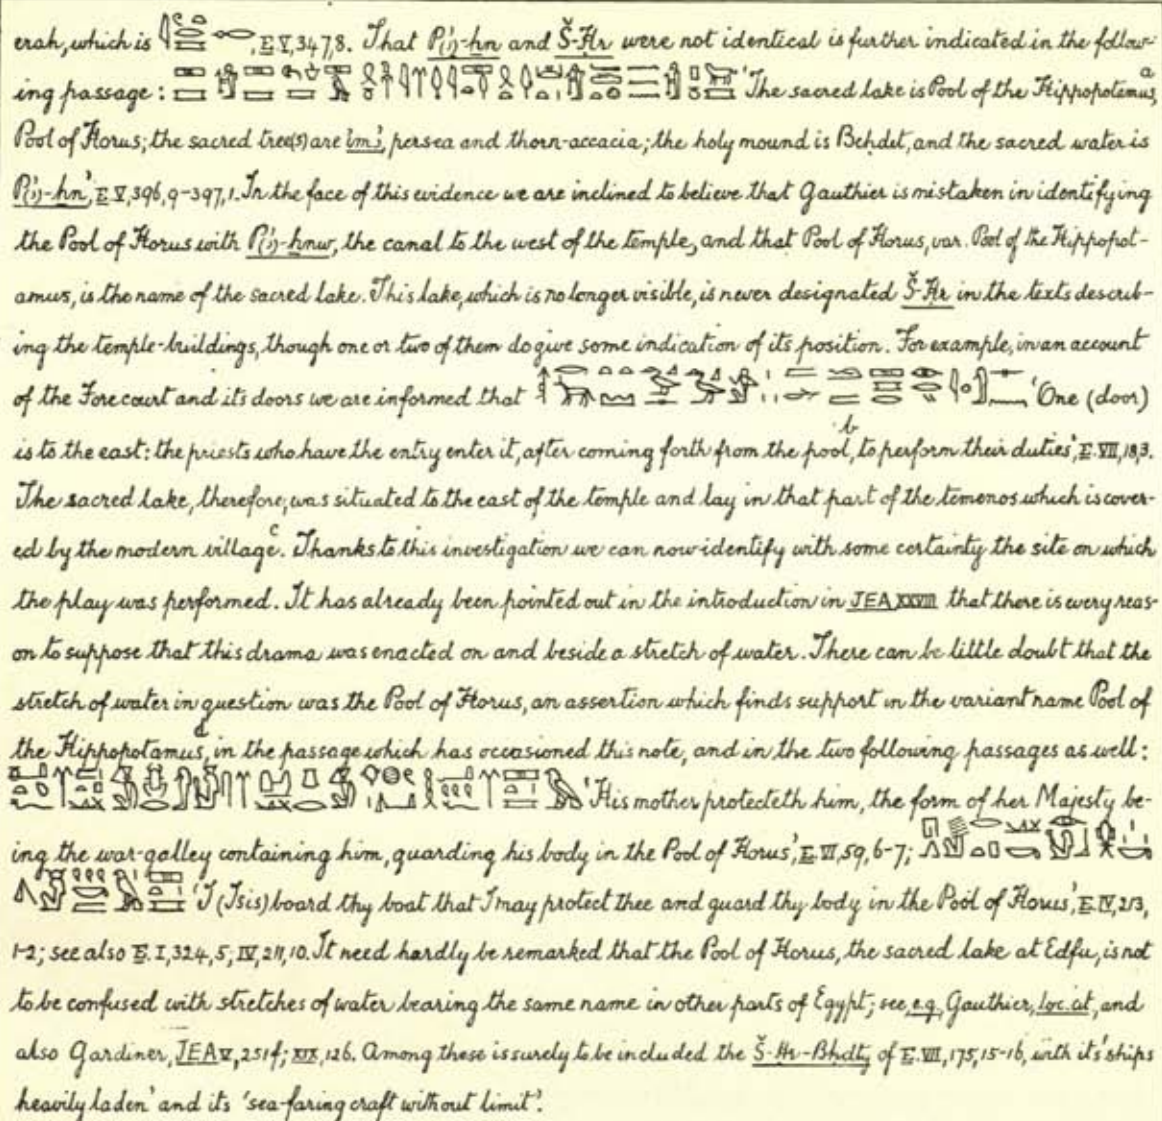 erah, which is , E. V, 347, 8. That P(ꜣ)-ḥn and Š-Ḥr were not identical is further indicated in the follow-
ing passage: 'The sacred lake is Pool of the Hippopotamus,ᵃ
Pool of Horus; the sacred tree(s) are imꜣ, persea and thorn-accacia; the holy mound is Beḥdet, and the sacred water is
P(ꜣ)-ḥn', E. V, 396, 9-397, 1. In the face of this evidence we are inclined to believe that Gauthier is mistaken in identifying
the Pool of Horus with P(ꜣ)-ḥnw, the canal to the west of the temple, and that Pool of Horus, var. Pool of the Hippopot-
amus, is the name of the sacred lake. This lake, which is no longer visible, is never designated Š-Ḥr in the texts describ-
ing the temple-buildings, though one or two of them do give some indication of its position. For example, in an account
of the Forecourt and its doors we are informed that 'One (door)
is to the east: the priests who have the entry enter it, after coming forth from the pool,ᵇ to perform their duties', E. VII, 18, 3.
The sacred lake, therefore, was situated to the east of the temple and lay in that part of the temenos which is cover-
ed by the modern villageᶜ. Thanks to this investigation we can now identify with some certainty the site on which
the play was performed. It has already been pointed out in the introduction in JEA XXVIII that there is every reas-
on to suppose that this drama was enacted on and beside a stretch of water. There can be little doubt that the
stretch of water in question was the Pool of Horus, an assertion which finds support in the variant name Pool of
the Hippopotamus,ᵈ in the passage which has occasioned this note, and in the two following passages as well:
'His mother protecteth him, the form of her Majesty be-
ing the war-galley containing him, guarding his body in the Pool of Horus', E. VI, 59, 6-7;
'I (Isis) board thy boat that I may protect thee and guard thy body in the Pool of Horus', E. IV, 213,
1-2; see also E. I, 324, 5; IV, 211, 10. It need hardly be remarked that the Pool of Horus, the sacred lake at Edfu, is not
to be confused with stretches of water bearing the same name in other parts of Egypt; see, e.g., Gauthier, loc. cit., and
also Gardiner, JEA V, 251 f; XIX, 126. Among these is surely to be included the Š-Ḥr-Bḥdty of E. VII, 175, 15-16, with its 'ships
heavily laden' and its 'sea-faring craft without limit'.